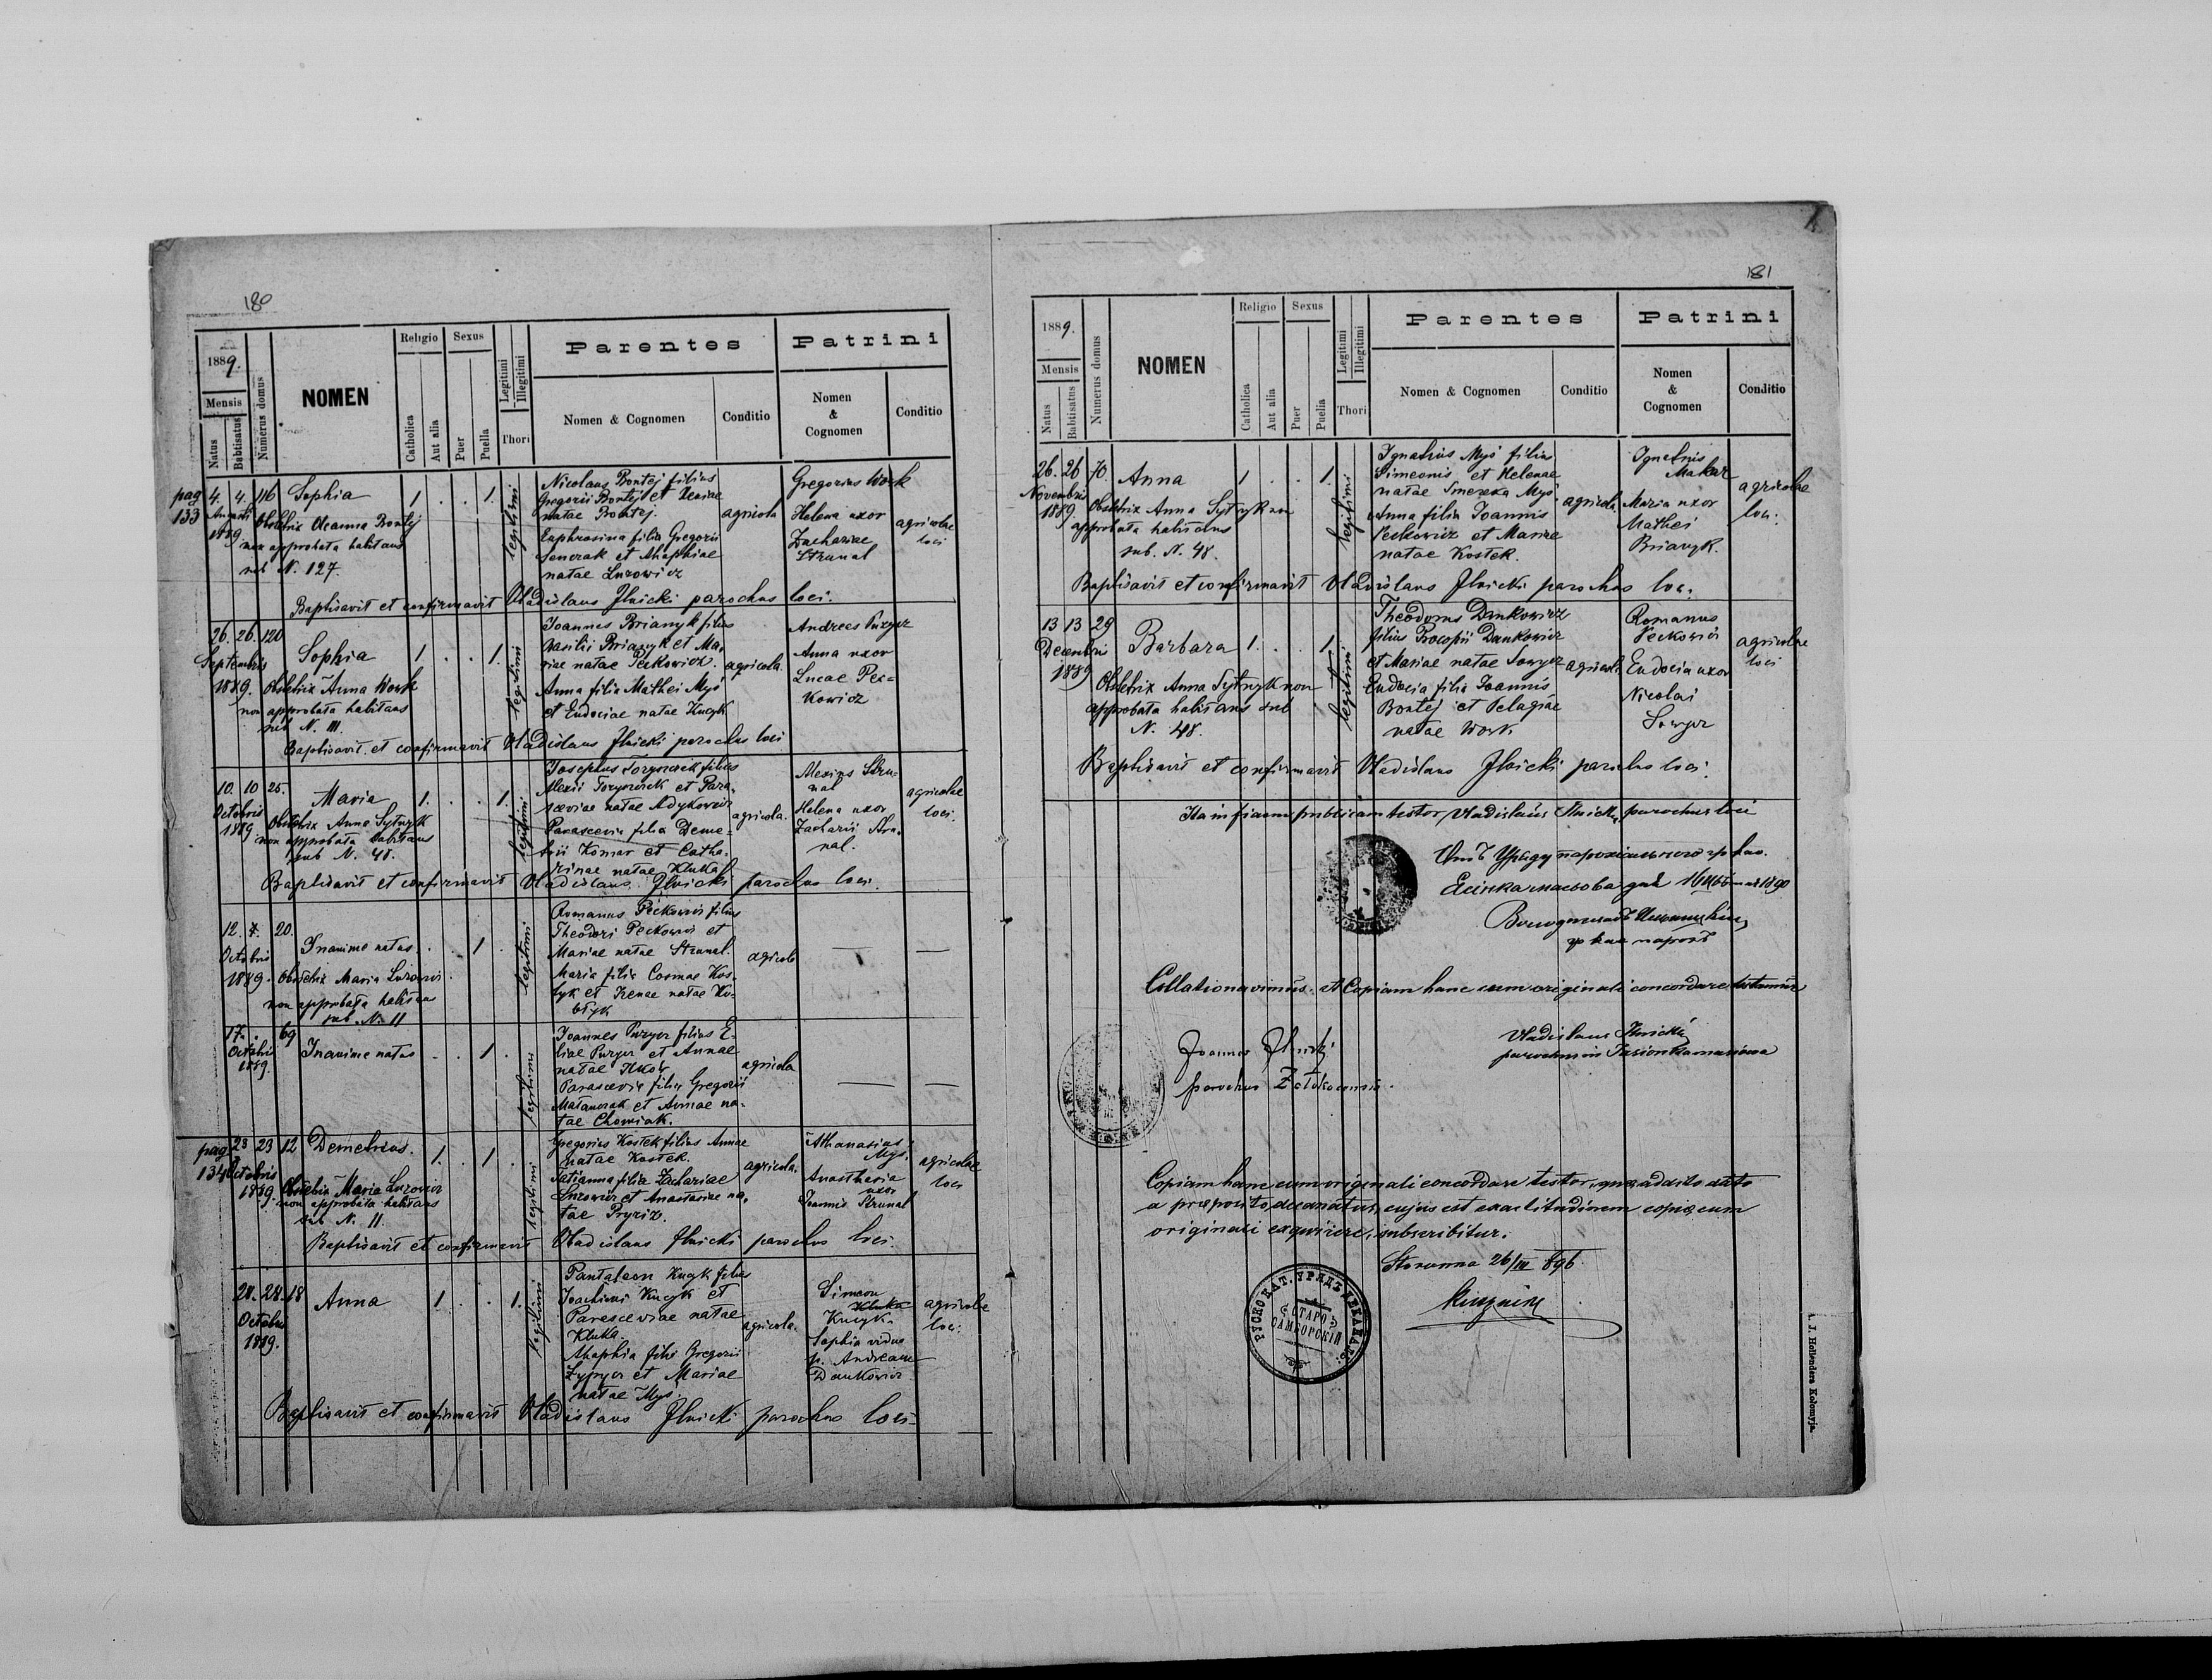 180
1889.
Mensis
Natus
Babtisatus
Numerus domus
NOMEN
Religio
Catholica
Aut alia
Sexus
Puer
Puella
Legitimi
Illegitimi
Thori
Parentes
Nomen & Cognomen
Conditio
Patrini
Nomen
&
Cognomen
Conditio
pag
133
4. 4. 116 Sophia 1 . . 1.
Augusti
1889
Obstetrix Bontej
non approbata habitans
sub N. 127.
legitimi
Nicolaus Bontej filius
Gregorii Bontej et Xeniae
natae Bontej.
Euphrosina filia Gregorii
Senczak et Ahaphiae
natae Lurowicz
agricola
Gregorius Work
Helena uxor
Zachariae
Strunal
agricolae
loci
Baptisavit et confirmavit Vladislaus Ilnicki parochus loci.
26. 26. 120 Sophia 1 . . 1.
Septembris
1889.
Obstetrix Anna Work
non approbata habitans
sub N. 111.
legitimi
Joannes Brianyk filius
Basilii Brianyk et Ma-
riae natae Peckowicz.
Anna filia Mathei Myś
et Eudociae natae Kucyk
agricola.
Andreas Puzyer
Anna uxor
Lucae Pec-
kowicz
Baptisavit et confirmavit Vladislaus Ilnicki parochus loci
10. 10 25. Maria 1. . . 1.
Octobris
1889
Obstetrix Anna Sytnyk
non approbata habitans
sub N. 48.
legitimi
Josephus filius
Alexii et Para-
sceviae natae
Parascevia filia Deme-
trii Komar et Catha-
rinae natae Kluka
agricola.
Alexius Stru-
nal
Helena uxor
Zacharii Stru-
nal.
agricolae
loci.
Baptisavit et confirmavit Vladislaus Ilnicki parochus loci.
12. 7. 20. Inanime natus . . 1 .
Octobris
1889.
Obstetrix Maria Lurowicz
non approbata habitans
sub N. 11
legitimi
Romanus Peckowicz filius
Theodori Peckowicz et
Mariae natae Strunal.
Maria filia Cosmae Kos-
tyk et Irenae natae Ko-
btyk
agricola
17. . 69 Inanime natus . . 1 .
Octobris
1889.
legitimi
Joannes Puzyer filius E-
liae Puzyer et Annae
natae Ilkow
Parascevia filia Gregorii
et Annae na-
tae Chomiak.
agricola
pag
134
23 23 12 Demetrius. 1. . 1 .
Octobris
1889.
Obstetrix Maria Lurowicz
non approbata habitans
sub N. 11.
legitimi
Gregorius Kostek filius Annae
natae Kostek.
Tatianna filia Zachariae
Lurowicz et Anastasiae na-
tae
agricola.
Athanasius
Myś.
Anasthasia
uxor
Joannis Strunal
agricolae
loci
Baptisavit et confirmavit Vladislaus Ilnicki parochus loci.
28. 28. 18 Anna 1 . . 1.
Octobris
1889.
legitimi
Pantaleon Kucyk filius
Joachimi Kucyk et
Parasceviae natae
Kluka.
Ahaphia filia Gregorii
et Mariae
natae Myś.
agricola.
Simeon
Kluka
Kucyk.
Sophia vidua
p. Andream
Dankowicz
agricolae
loci.
Baptisavit et confirmavit Vladislaus Ilnicki parochus loci.
181
1889.
Mensis
Natus
Babtisatus
Numerus domus
NOMEN
Religio
Catholica
Aut alia
Sexus
Puer
Puella
Legitimi
Illegitimi
Thori
Parentes
Nomen & Cognomen
Conditio
Patrini
Nomen
&
Cognomen
Conditio
26. 26 70. Anna 1 . . 1.
Novembris
1889.
Obstetrix Anna Sytnyk non
approbata habitans
sub. N. 48.
legitimi
Ignatius Myś filius
Simeonis et Helenae
natae Smereka Myś.
Anna filia Joannis
Peckowicz et Mariae
natae Kostek.
agricola.
Ignatius
Makar
Maria uxor
Mathei
Brianyk.
agricolae
loci.
Baptisavit et confirmavit Vladislaus Ilnicki parochus loci.
13 13 29 Barbara 1. . . 1.
Decembris
1889
Obstetrix Anna Sytnyk non
approbata habitans sub
N. 48.
legitimi
Theodorus Dankowicz
filius Procopii Dankowicz
et Mariae natae Sowyer
Eudocia filia Joannis
Bontej et Pelagiae
natae Work
agricola.
Romanus
Peckowicz
Eudocia uxor
Nicolai
Sowyer
agricolae
loci
Baptisavit et confirmavit Vladislaus Ilnicki parochus loci.
Ita in fidem publicam testor, Vladislaus Ilnicki, parochus loci
Collationavimus et Copiam hanc cum originali concordare testamur
Joannes Ilnicki
parochus
Vladislaus Ilnicki
parochus in Jasionka masiowa
Copiam hanc cum originali concordare testor, quo addito dato
a praeposito decanatus, cujus est exactitudinem copiae cum
originali exquirere, subscribitur.
Stronna 26/III 896.
РУСКО КАТ. УРЯДЪ ДЕКАНАЛ.
СТАРО
САМБОРСКІЙ
J. Hollendera Kołomyja.